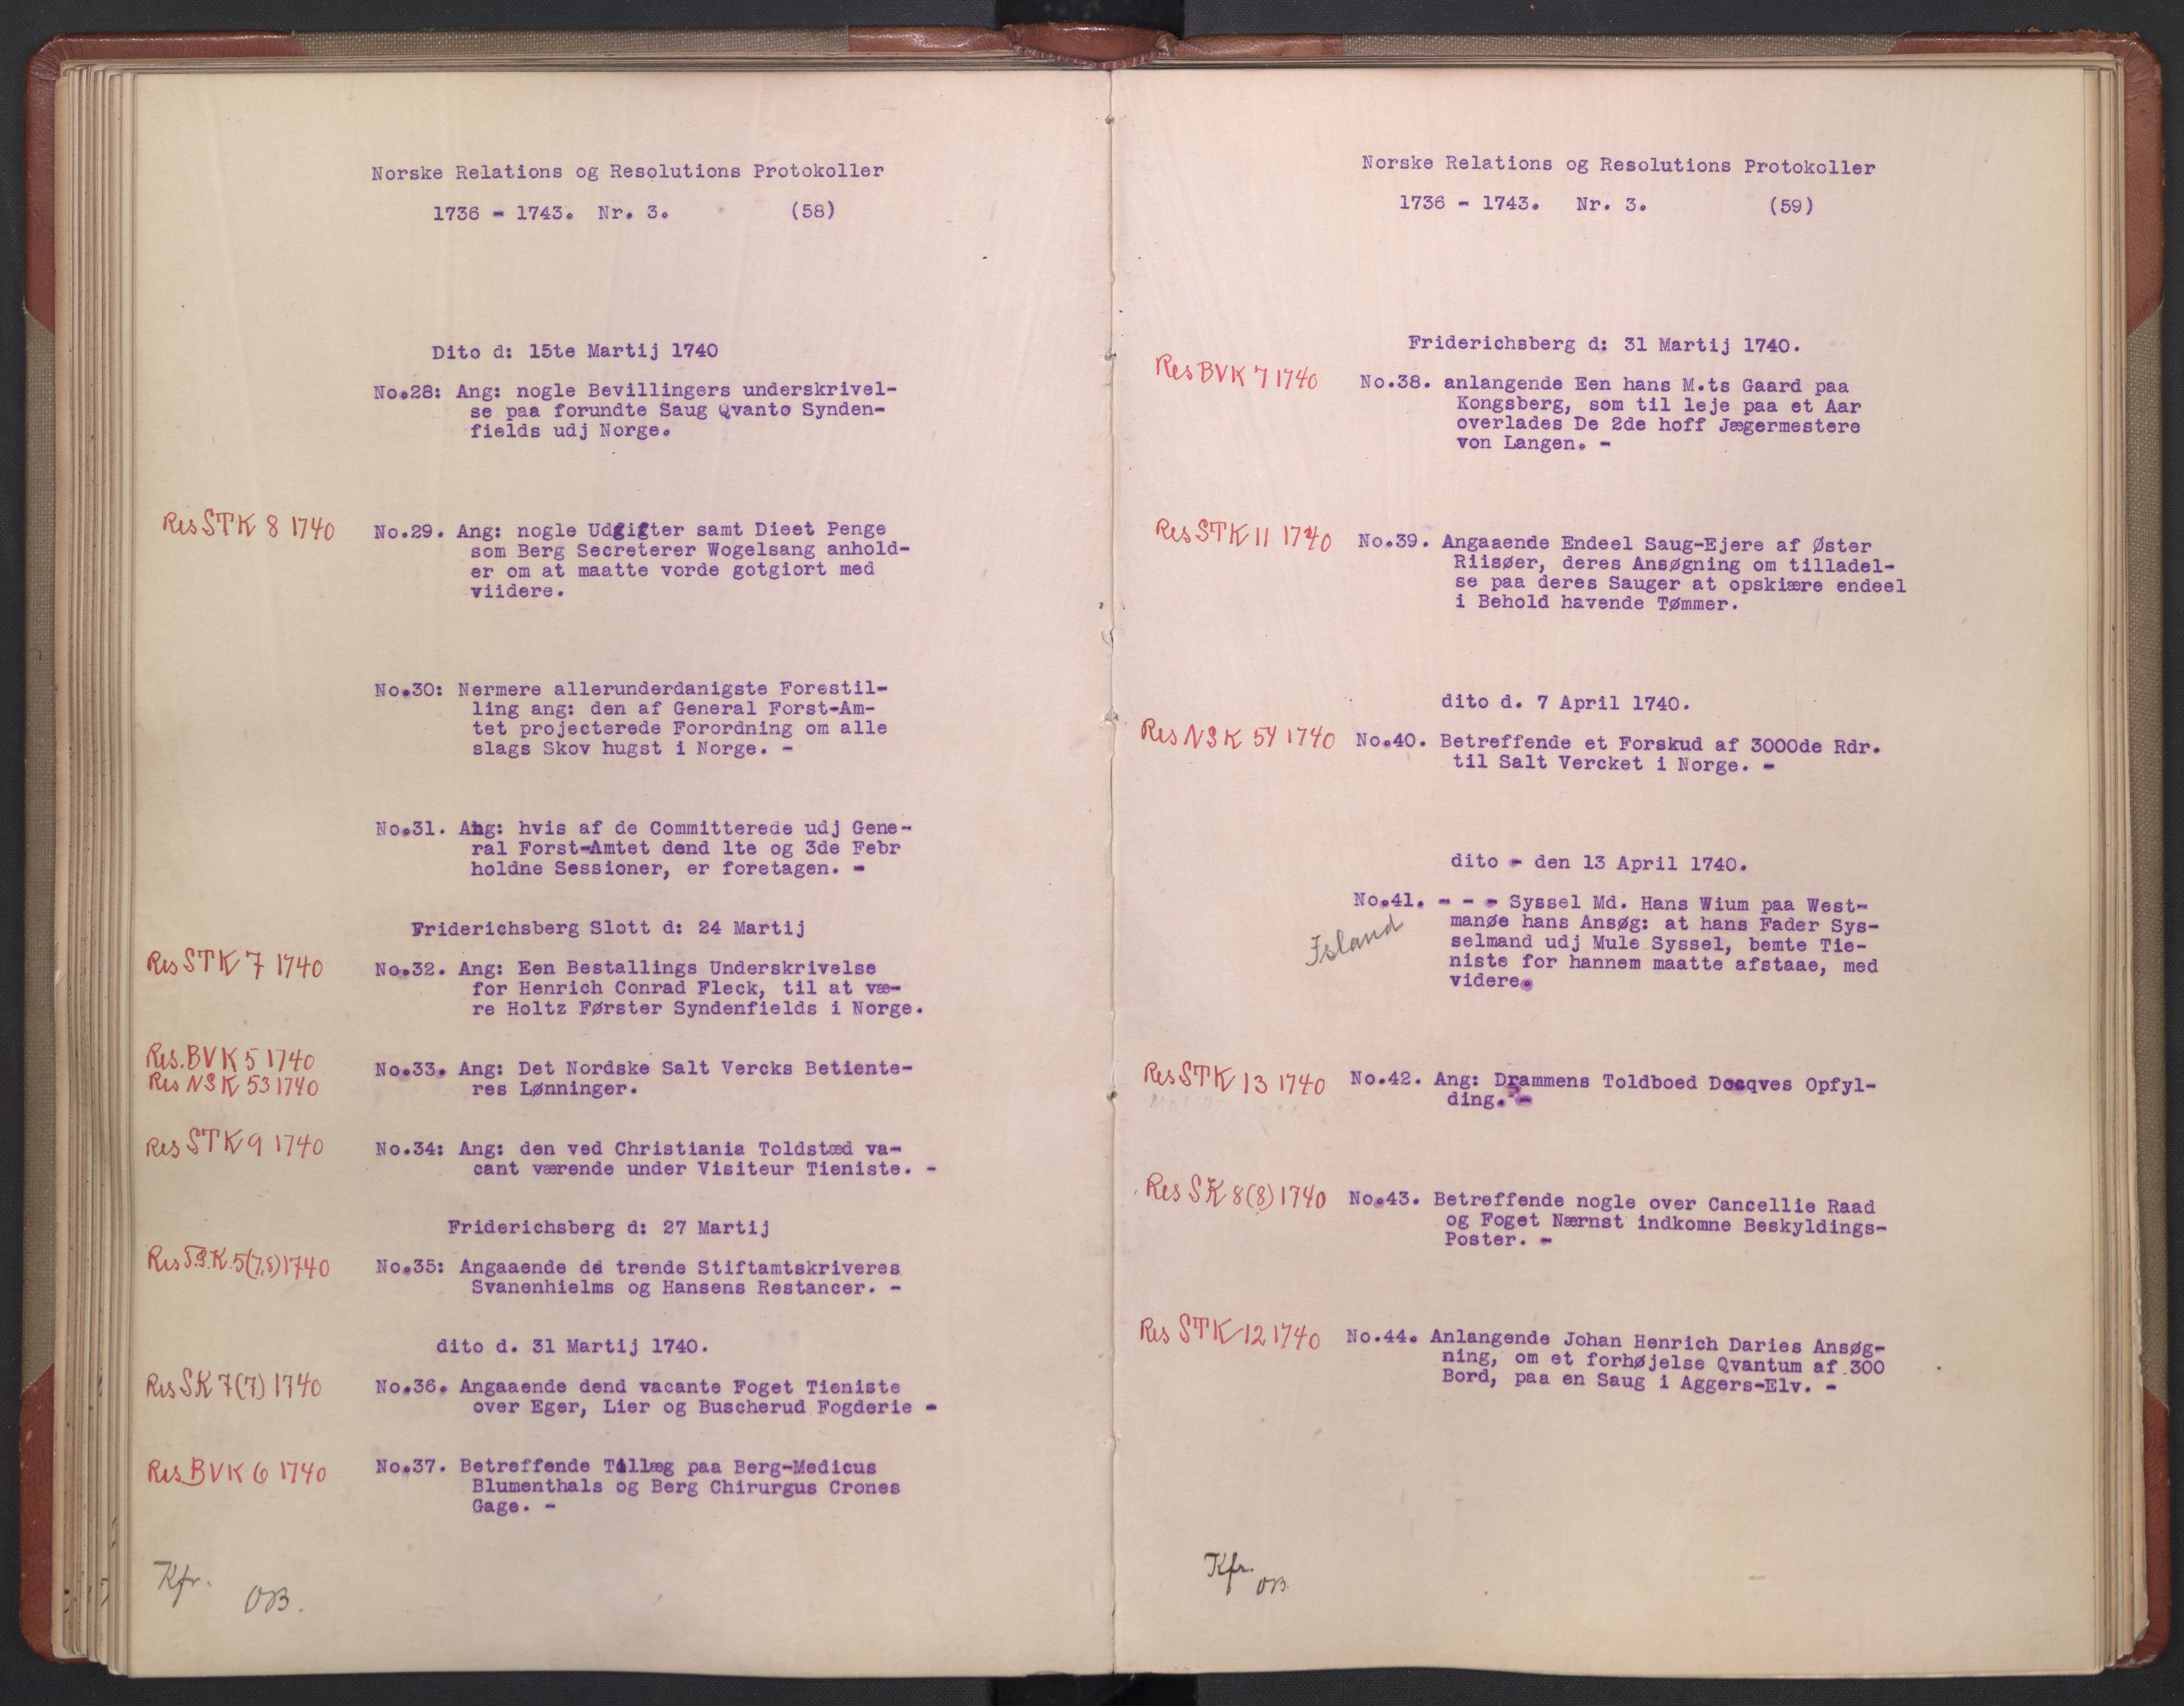 Norske Relations og Resolutions Protokoller
1736 - 1743. Nr. 3. (58)
Dito d: 15te Martij 1740
No.28: Ang: nogle Bevillingers underskrivel-
se paa forundte Saug Qvanto Synden-
fields udj Norge.
Res STK 8 1740 No.29. Ang: nogle Udgifter samt Dieet Penge
som Berg Secreterer Wogelsang anhold-
er om at maatte vorde gotgiort med
viidere.
No.30: Nermere allerunderdanigste Forestil-
ling ang: den af General Forst-Am-
tet projecterede Forordning om alle
slags Skov hugst i Norge. -
No.31. Ang: hvis af de Committerede udj Gene-
ral Forst-Amtet dend 1te og 3de Febr
holdne Sessioner, er foretagen. -
Friderichsberg Slott d: 24 Martij
Res STK 7 1740 No.32. Ang: Een Bestallings Underskrivelse
for Henrich Conrad Fleck, til at væ-
re Holtz Førster Syndenfields i Norge.
Res. BVK 5 1740
Res NSK 53 1740 No.33. Ang: Det Nordske Salt Vercks Betiente-
res Lønninger.
Res STK 9 1740 No.34: Ang: den ved Christiania Toldstæd va-
cant værende under Visiteur Tieniste. -
Friderichsberg d: 27 Martij
Res T.S.K. 5(7,8) 1740 No.35: Angaaende de trende Stiftamtskriveres
Svanenhielms og Hansens Restancer. -
dito d. 31 Martij 1740.
Res SK 7(7) 1740 No.36. Angaaende dend vacante Foget Tieniste
over Eger, Lier og Buscherud Fogderie -
Res BVK 6 1740 No.37. Betreffende Tillæg paa Berg-Medicus
Blumenthals og Berg Chirurgus Crones
Gage. -
Kfr.
OB.
Norske Relations og Resolutions Protokoller
1736 - 1743. Nr. 3. (59)
Friderichsberg d: 31 Martij 1740.
Res BVK 7 1740 No.38. anlangende Een hans M.ts Gaard paa
Kongsberg, som til leje paa et Aar
overlades De 2de hoff Jægermestere
von Langen. -
Res STK 11 1740 No.39. Angaaende Endeel Saug-Ejere af Øster
Riisøer, deres Ansøgning om tilladel-
se paa deres Sauger at opskiære endeel
i Behold havende Tømmer.
dito d. 7 April 1740.
Res NSK 54 1740 No.40. Betreffende et Forskud af 3000de Rdr.
til Salt Vercket i Norge. -
dito - den 13 April 1740.
No.41. - - - Syssel Md. Hans Wium paa West-
Island manøe hans Ansøg: at hans Fader Sys-
selmand udj Mule Syssel, bemte Tie-
niste for hannem maatte afstaae, med
videre.
Res STK 13 1740 No.42. Ang: Drammens Toldboed Docqves Opfyl-
ding. -
Res SK 8(8) 1740 No.43. Betreffende nogle over Cancellie Raad
og Foget Nærnst indkomne Beskyldings-
Poster. -
Res STK 12 1740 No.44. Anlangende Johan Henrich Daries Ansøg-
ning, om et forhøjelse Qvantum af 300
Bord, paa en Saug i Aggers-Elv. -
Kfr.
OB.